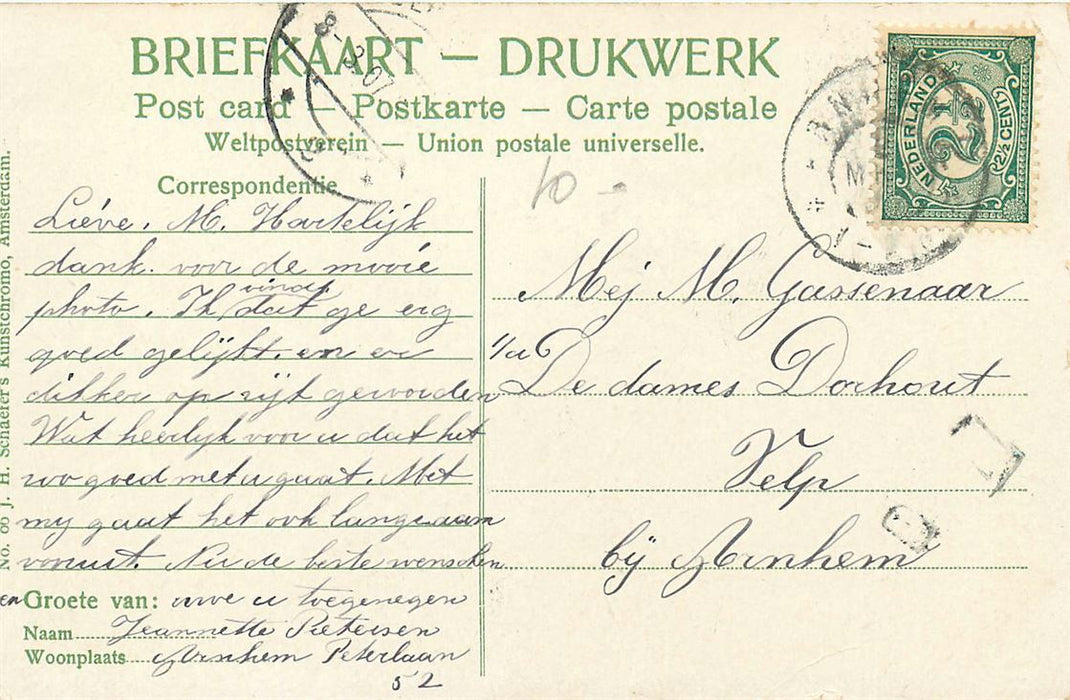 BRIEFKAART — DRUKWERK
Post card — Postkarte — Carte postale
Weltpostverein — Union postale universelle.
8-3.07
NEDERLAND
2½
(2½ CENT)
10 -
Correspondentie
Liéve. M. Hartelijk
dank. voor de mooie
photo. Ik vind
dat ge erg
goed gelijkt. en er
dikker op zijt geworden
Wat heerlijk voor u dat het
zoo goed met u gaat. Met
my gaat het ook langzaam
vooruit. Nu de beste wenschen
en Groete van: uwe u toegenegen
Naam Jeannette Pietersen
Woonplaats Arnhem Peterlaan
52
Mej M. Gassenaar
De dames Dorhout
Velp
bÿ Arnhem
No. 60 J. H. Schaefer's Kunstchromo, Amsterdam.